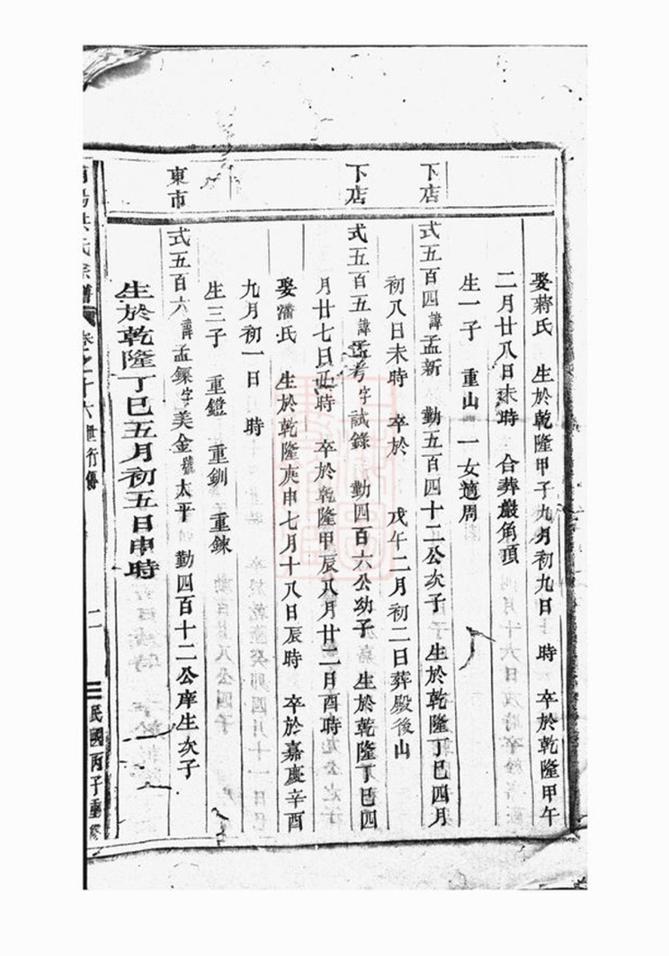 娶蔣氏 生於乾隆甲子九月初九日 時 卒於乾隆甲午
二月廿八日未時 合葬巖角頂
生一子 重山 一女適周
下店
式五百四諱孟新 勤五百四十二公次子 生於乾隆丁巳四月
初八日未時 卒於 戊午二月初二日葬殿後山
下店
式五百五諱孟考字試錄 勤四百六公幼子 生於乾隆丁巳四
月廿七日 時 卒於乾隆甲辰八月廿二月酉時
娶潘氏 生於乾隆庚申七月十八日辰時 卒於嘉慶辛酉
九月初一日 時
生三子 重鐙 重釧 重鍊
東市
式五百六諱孟 字美金號太平 勤四百十二公庠生次子
生於乾隆丁巳五月初五日申時
洪氏宗譜 卷之 十六世行傳 二 三 民國丙子重修